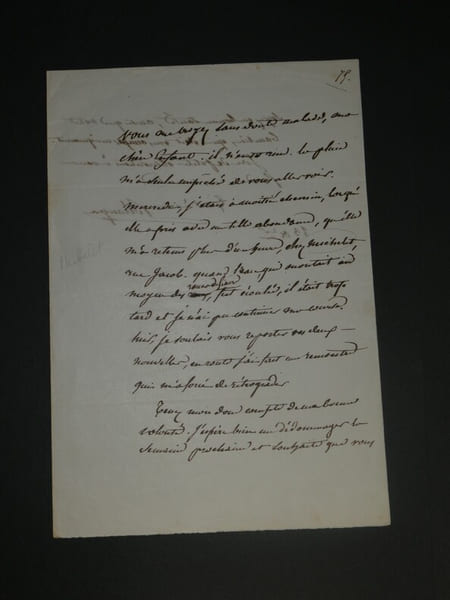 75.
Vous me croyez sans doute malade, mon
cher Enfant. il n'en est rien. la pluie
m'a seule empêché de vous aller voir.
mercredi, j'étais à moitié chemin, lorsqu'
elle a pris avec une telle abondance, qu'elle
m'a retenu plus d'une heure, chez Michelet,
rue Jacob. quand l'eau, qui montait au
moyeu des roues, fut écoulée, il était trop
tard et je n'ai pu continuer ma course.
hier, je voulais vous reporter vos deux
nouvelles, en route j'ai fait une rencontre
qui m'a forcé de rétrograder
Tenez moi donc compte de ma bonne
volonté. J'espère bien me dédommager la
semaine prochaine et souhaite que vous
Michelet